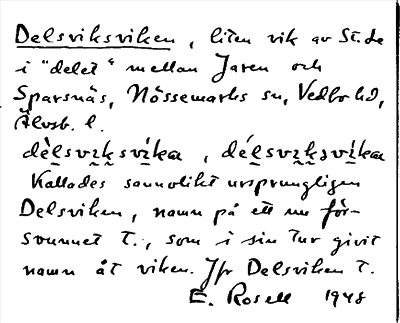 Delsviksviken, liten vik av St. Le
i "delet" mellan Jaren och
Sparsnäs, Nössemarks sn, Vedbo hd,
Älvsb. l.
dè̱lsvɪ̱ksvɪ́ka, dé̱lsvɪ̱ksvɪ̀ka
Kallades sannolikt ursprungligen
Delsviken, namn på ett nu för-
svunnet T., som i sin tur givit
namn åt viken. Jfr Delsviken T.
E. Rosell 1948